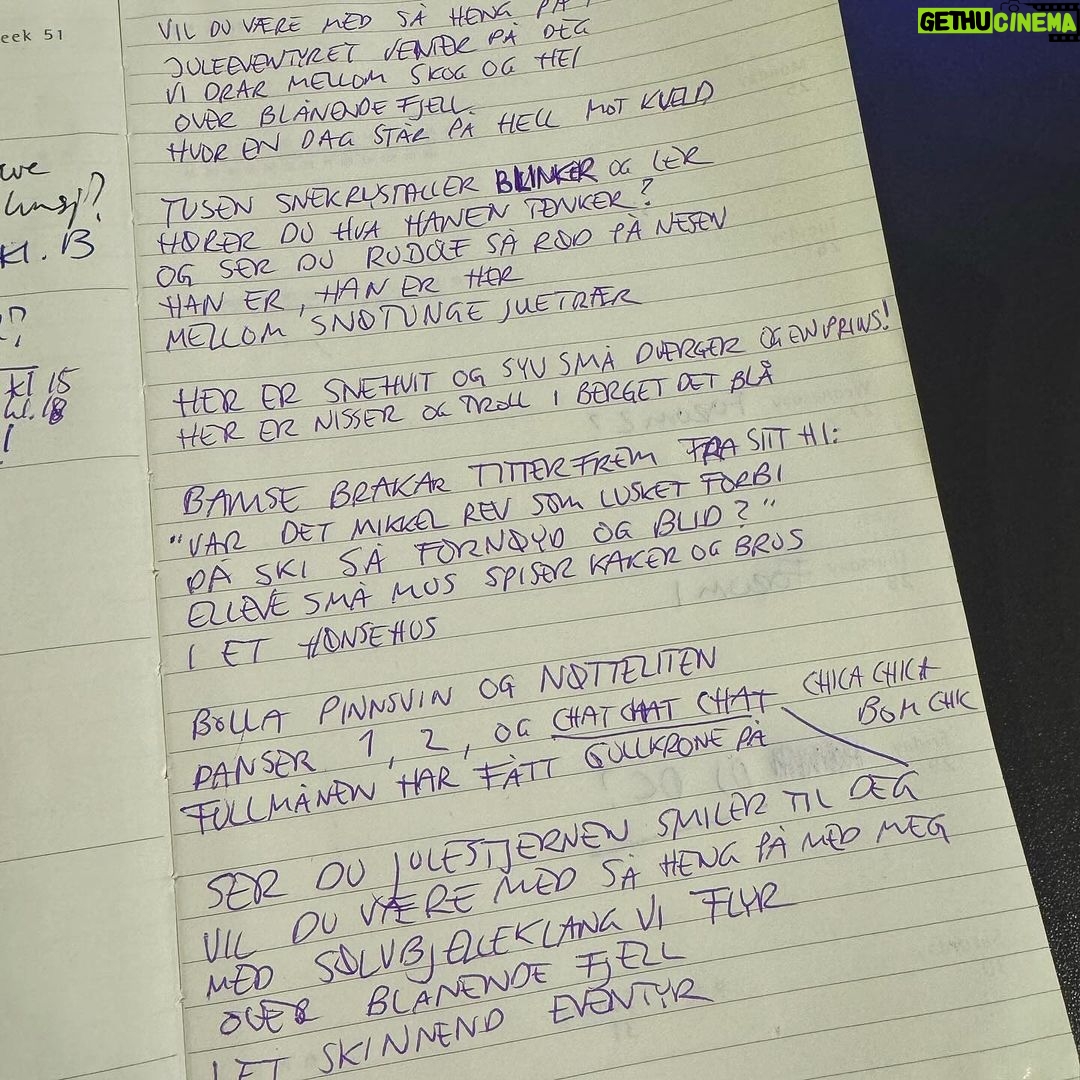 GETHUCINEMA
eek 51
kl. 13
kl 15
kl. 18
VIL DU VÆRE MED SÅ HENG PÅ
JULEEVENTYRET VENTER PÅ DEG
VI DRAR MELLOM SKOG OG HEI
OVER BLÅNENDE FJELL
HVOR EN DAG STÅR PÅ HELL MOT KVELD
TUSEN SNEKRYSTALLER BLINKER OG LER
HØRER DU HVA HANEN TENKER?
OG SER DU RUDOLF SÅ RØD PÅ NESEN
HAN ER, HAN ER HER
MELLOM SNØTUNGE JUETRÆR
HER ER SNEHVIT OG SYV SMÅ DVERGER OG EN PRINS!
HER ER NISSER OG TROLL I BERGET DET BLÅ
BAMSE BRAKAR TITTER FREM FRA SITT HI:
"VAR DET MIKKEL REV SOM LUSKET FORBI
PÅ SKI SÅ FORNØYD OG BLID?"
ELLEVE SMÅ MUS SPISER KAKER OG BRUS
I ET HØNSEHUS
BOLLA PINNSVIN OG NØTTELITEN
DANSER 1, 2, OG CHAT CHAT CHAT CHICA CHICA
BOM CHIC
FULLMÅNEN HAR FÅTT GULLKRONE PÅ
SER DU JULESTJERNEN SMILER TIL DEG
VIL DU VÆRE MED SÅ HENG PÅ MED MEG
MED SØLVBJELLEKLANG VI FLYR
OVER BLANENDE FJELL
I ET SKINNEND EVENTYR